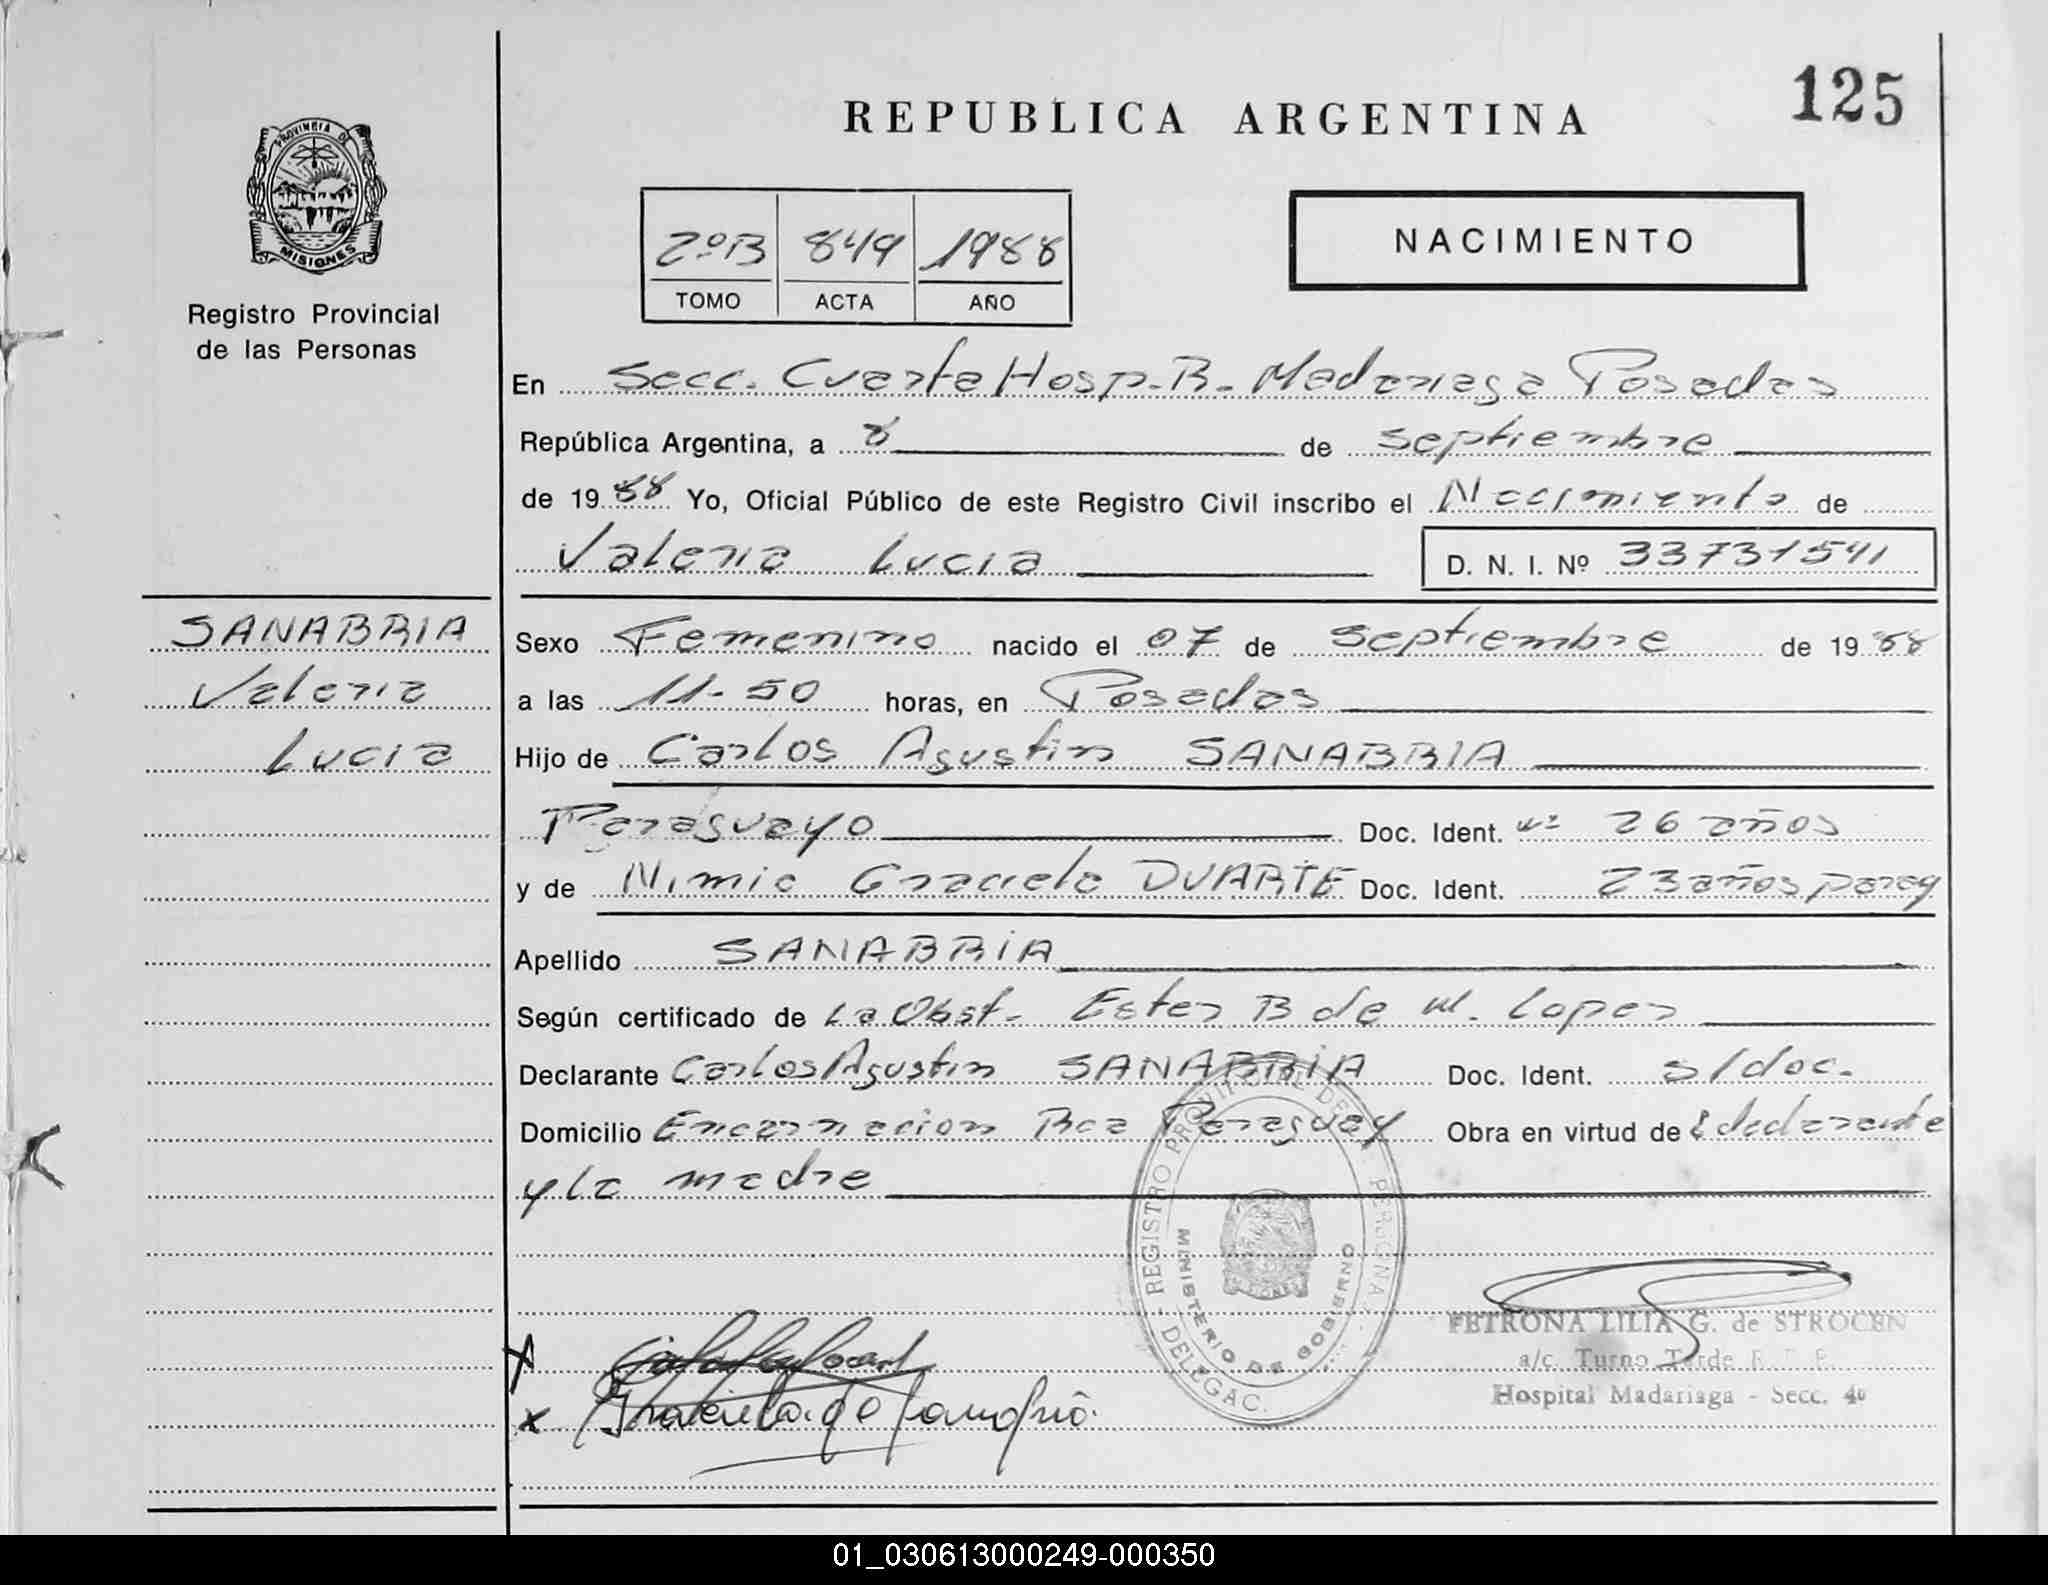 125
REPUBLICA ARGENTINA
PROVINCIA DE
MISIONES
Registro Provincial
de las Personas
2º B 849 1988
TOMO ACTA AÑO
NACIMIENTO
En Secc. Cuarta Hosp. R. Madariaga Posadas
República Argentina, a 8 de septiembre
de 1988 Yo, Oficial Público de este Registro Civil inscribo el Nacimiento de
Valeria Lucia D. N. I. Nº 33731541
SANABRIA
Valeria
Lucia
Sexo Femenino nacido el 07 de septiembre de 1988
a las 11-50 horas, en Posadas
Hijo de Carlos Agustin SANABRIA
Paraguayo Doc. Ident. 26 años
y de Nimia Graciela DUARTE Doc. Ident. 23 años parag
Apellido SANABRIA
Según certificado de La Obst. Ester B de M. Lopez
Declarante Carlos Agustin SANABRIA Doc. Ident. s/doc.
Domicilio Encarnacion Rca Paraguay Obra en virtud de declarante
y la madre
REGISTRO PROVINCIAL DE PERSONAS
MINISTERIO DE GOBIERNO
DELEGAC.
PETRONA LILIA G. de STROCEN
a/c. Turno Tarde R. P. P.
Hospital Madariaga - Secc. 4º
x
x
01_030613000249-000350